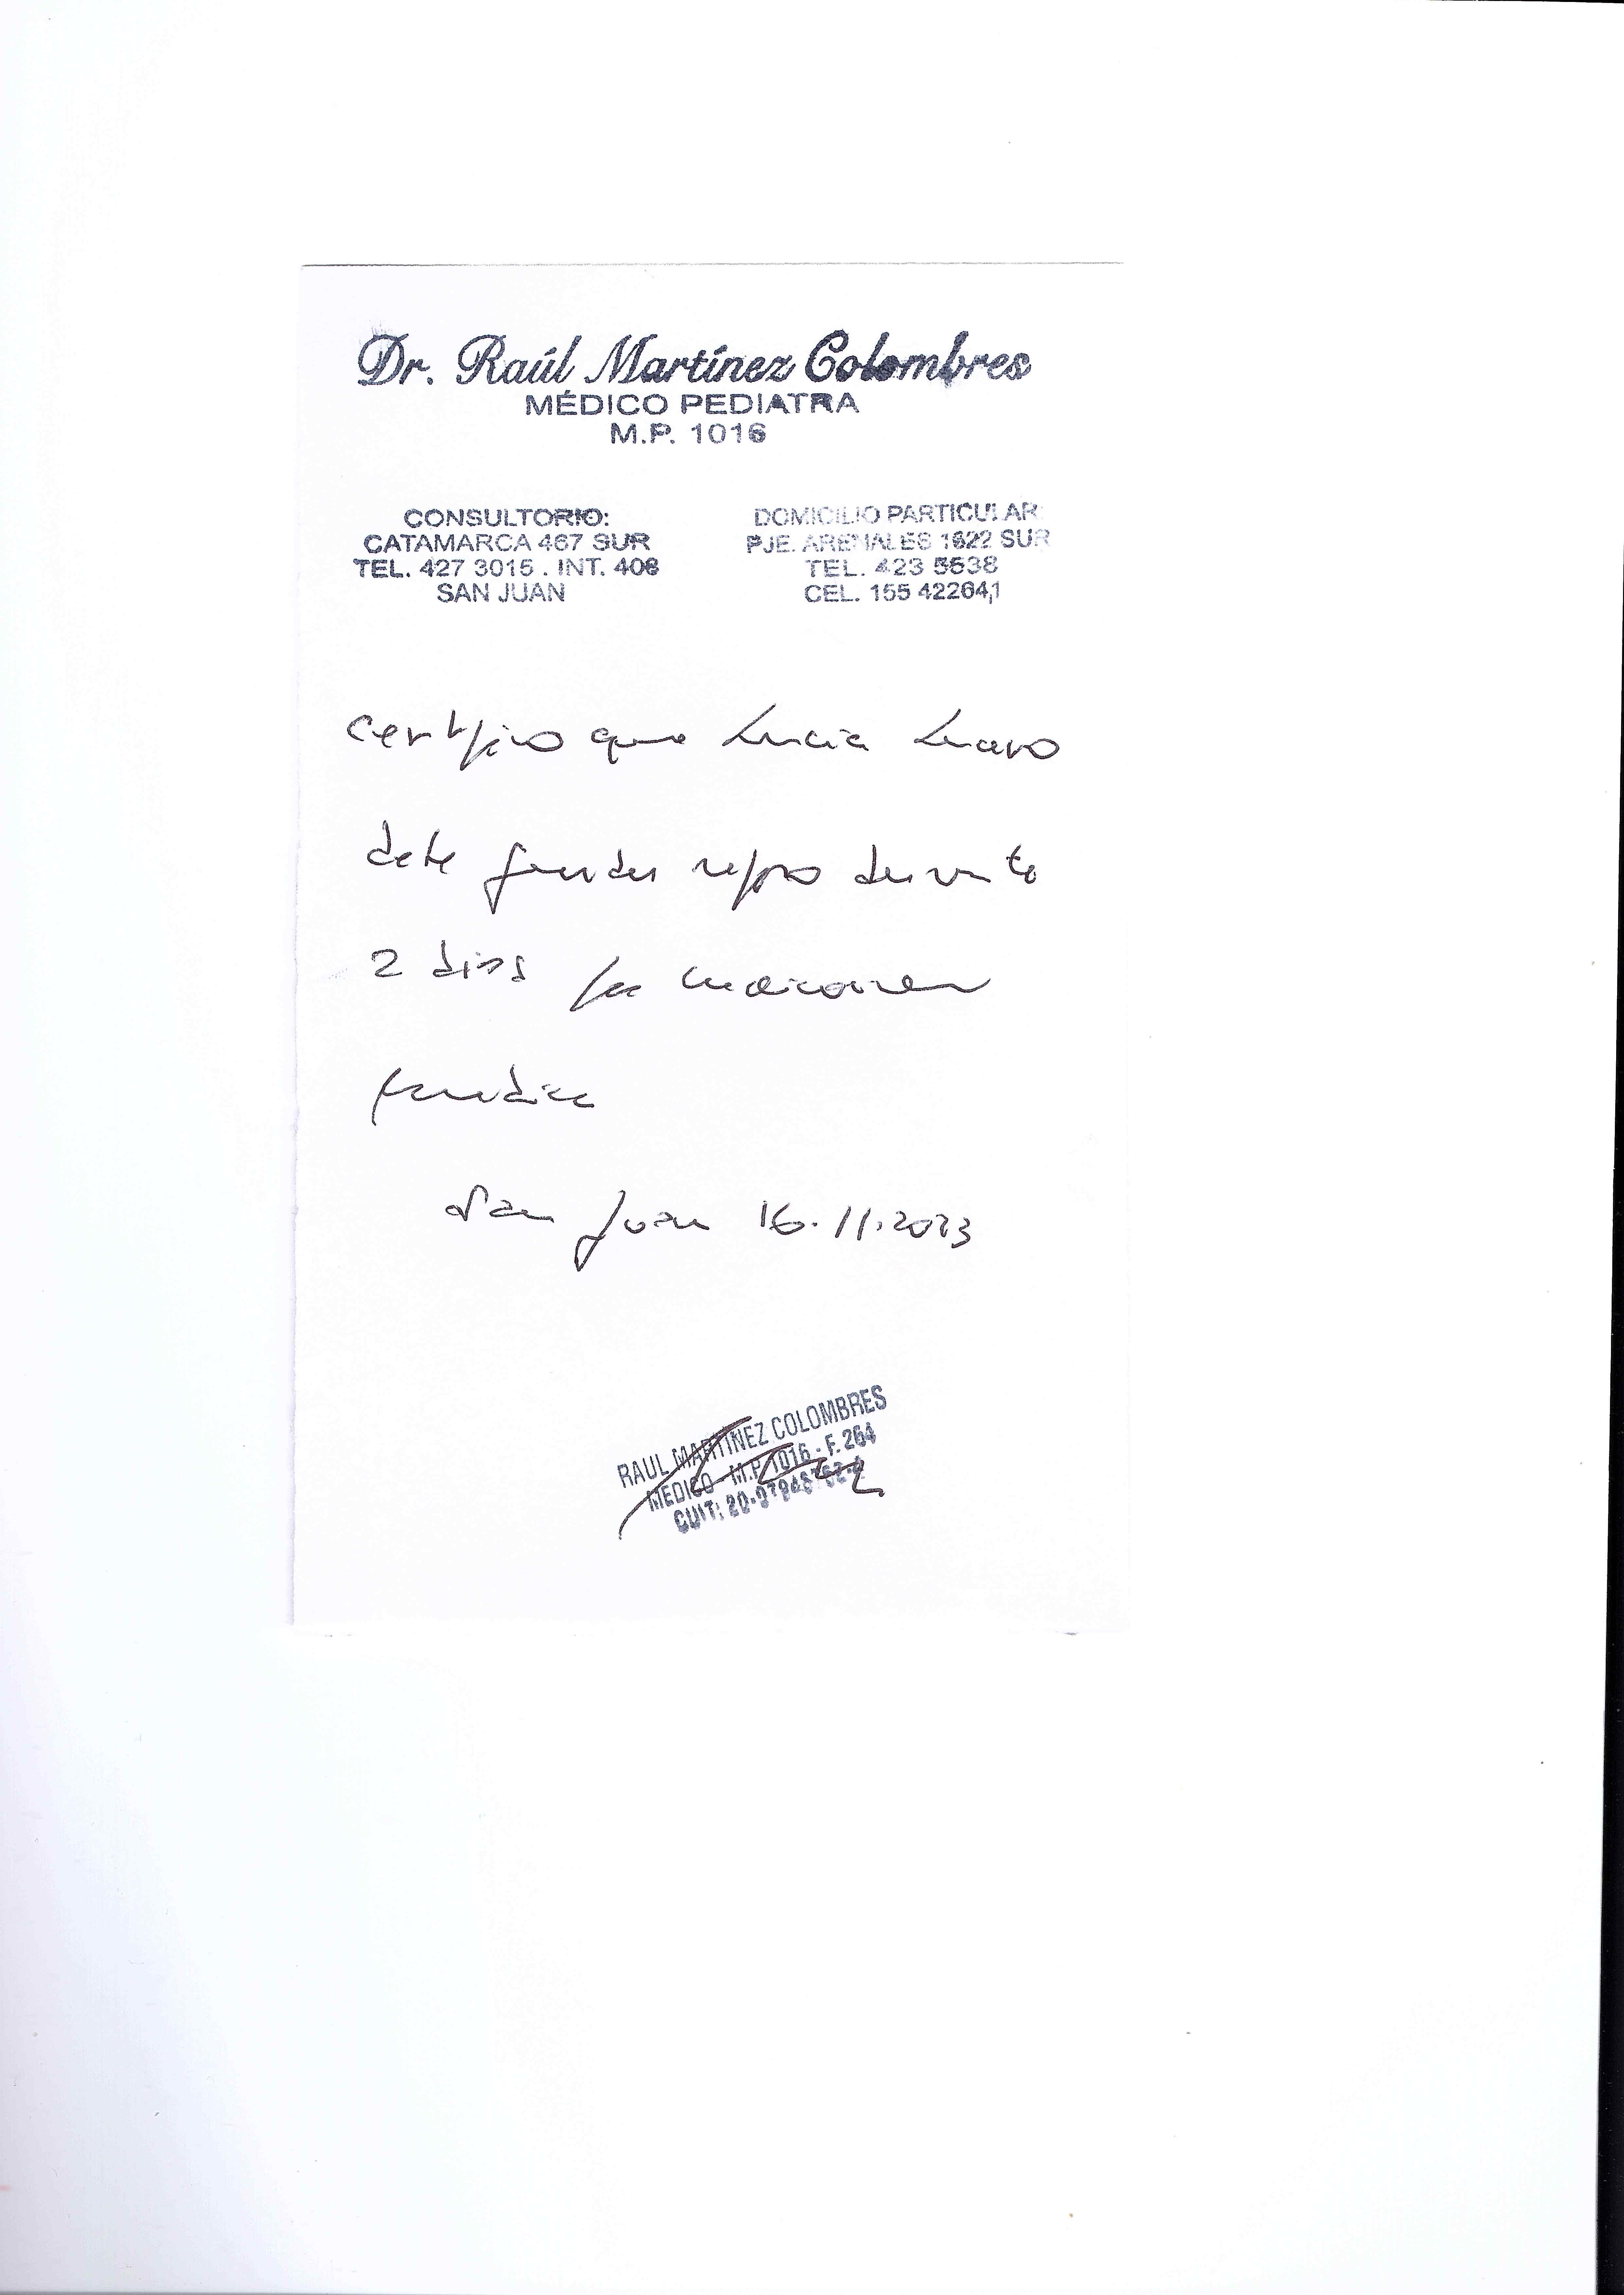 Dr. Raúl Martínez Colombres
MÉDICO PEDIATRA
M.P. 1016
CONSULTORIO:
CATAMARCA 467 SUR
TEL. 427 3015 . INT. 408
SAN JUAN
DOMICILIO PARTICULAR
PJE. ARENALES 1622 SUR
TEL. 423 5538
CEL. 155 422641
Certifico que Lucia
debe guardar reposo durante
2 dias por
San Juan 16.11.2023
RAUL MARTINEZ COLOMBRES
MEDICO - M.P. 1016 - F. 264
CUIT: